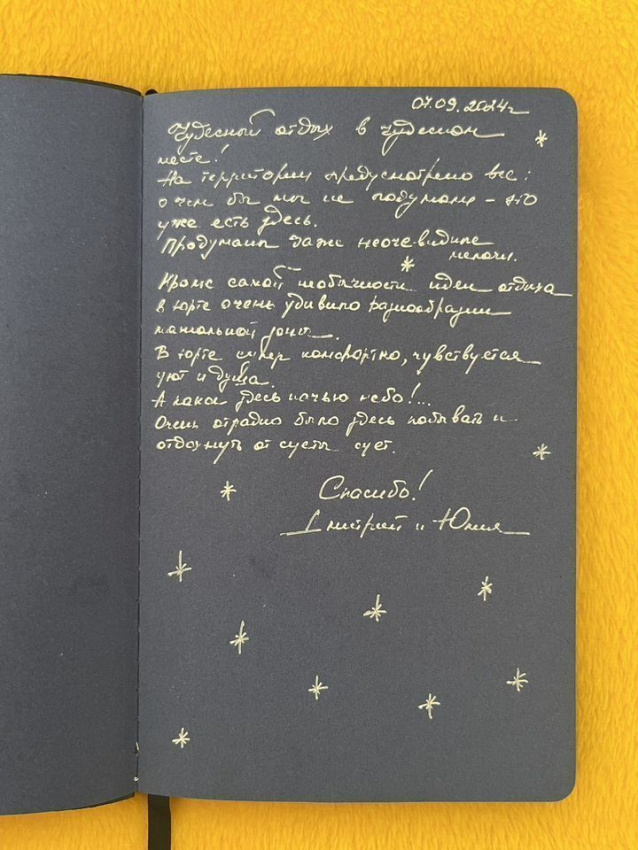 07.09.2024г
Чудесный отдых в чудесном
месте!
На территории предусмотрено все:
о чем бы мы не подумали - это
уже есть здесь.
Продуманы даже неочевидные
мелочи.
Кроме самой необычности идеи отдыха
в юрте очень удивило разнообразие
мангальной зоны.
В юрте супер комфортно, чувствуется
уют и душа.
А какое здесь ночью небо!...
Очень отрадно было здесь побывать и
отдохнуть от суеты сует.
Спасибо!
Дмитрий и Юлия